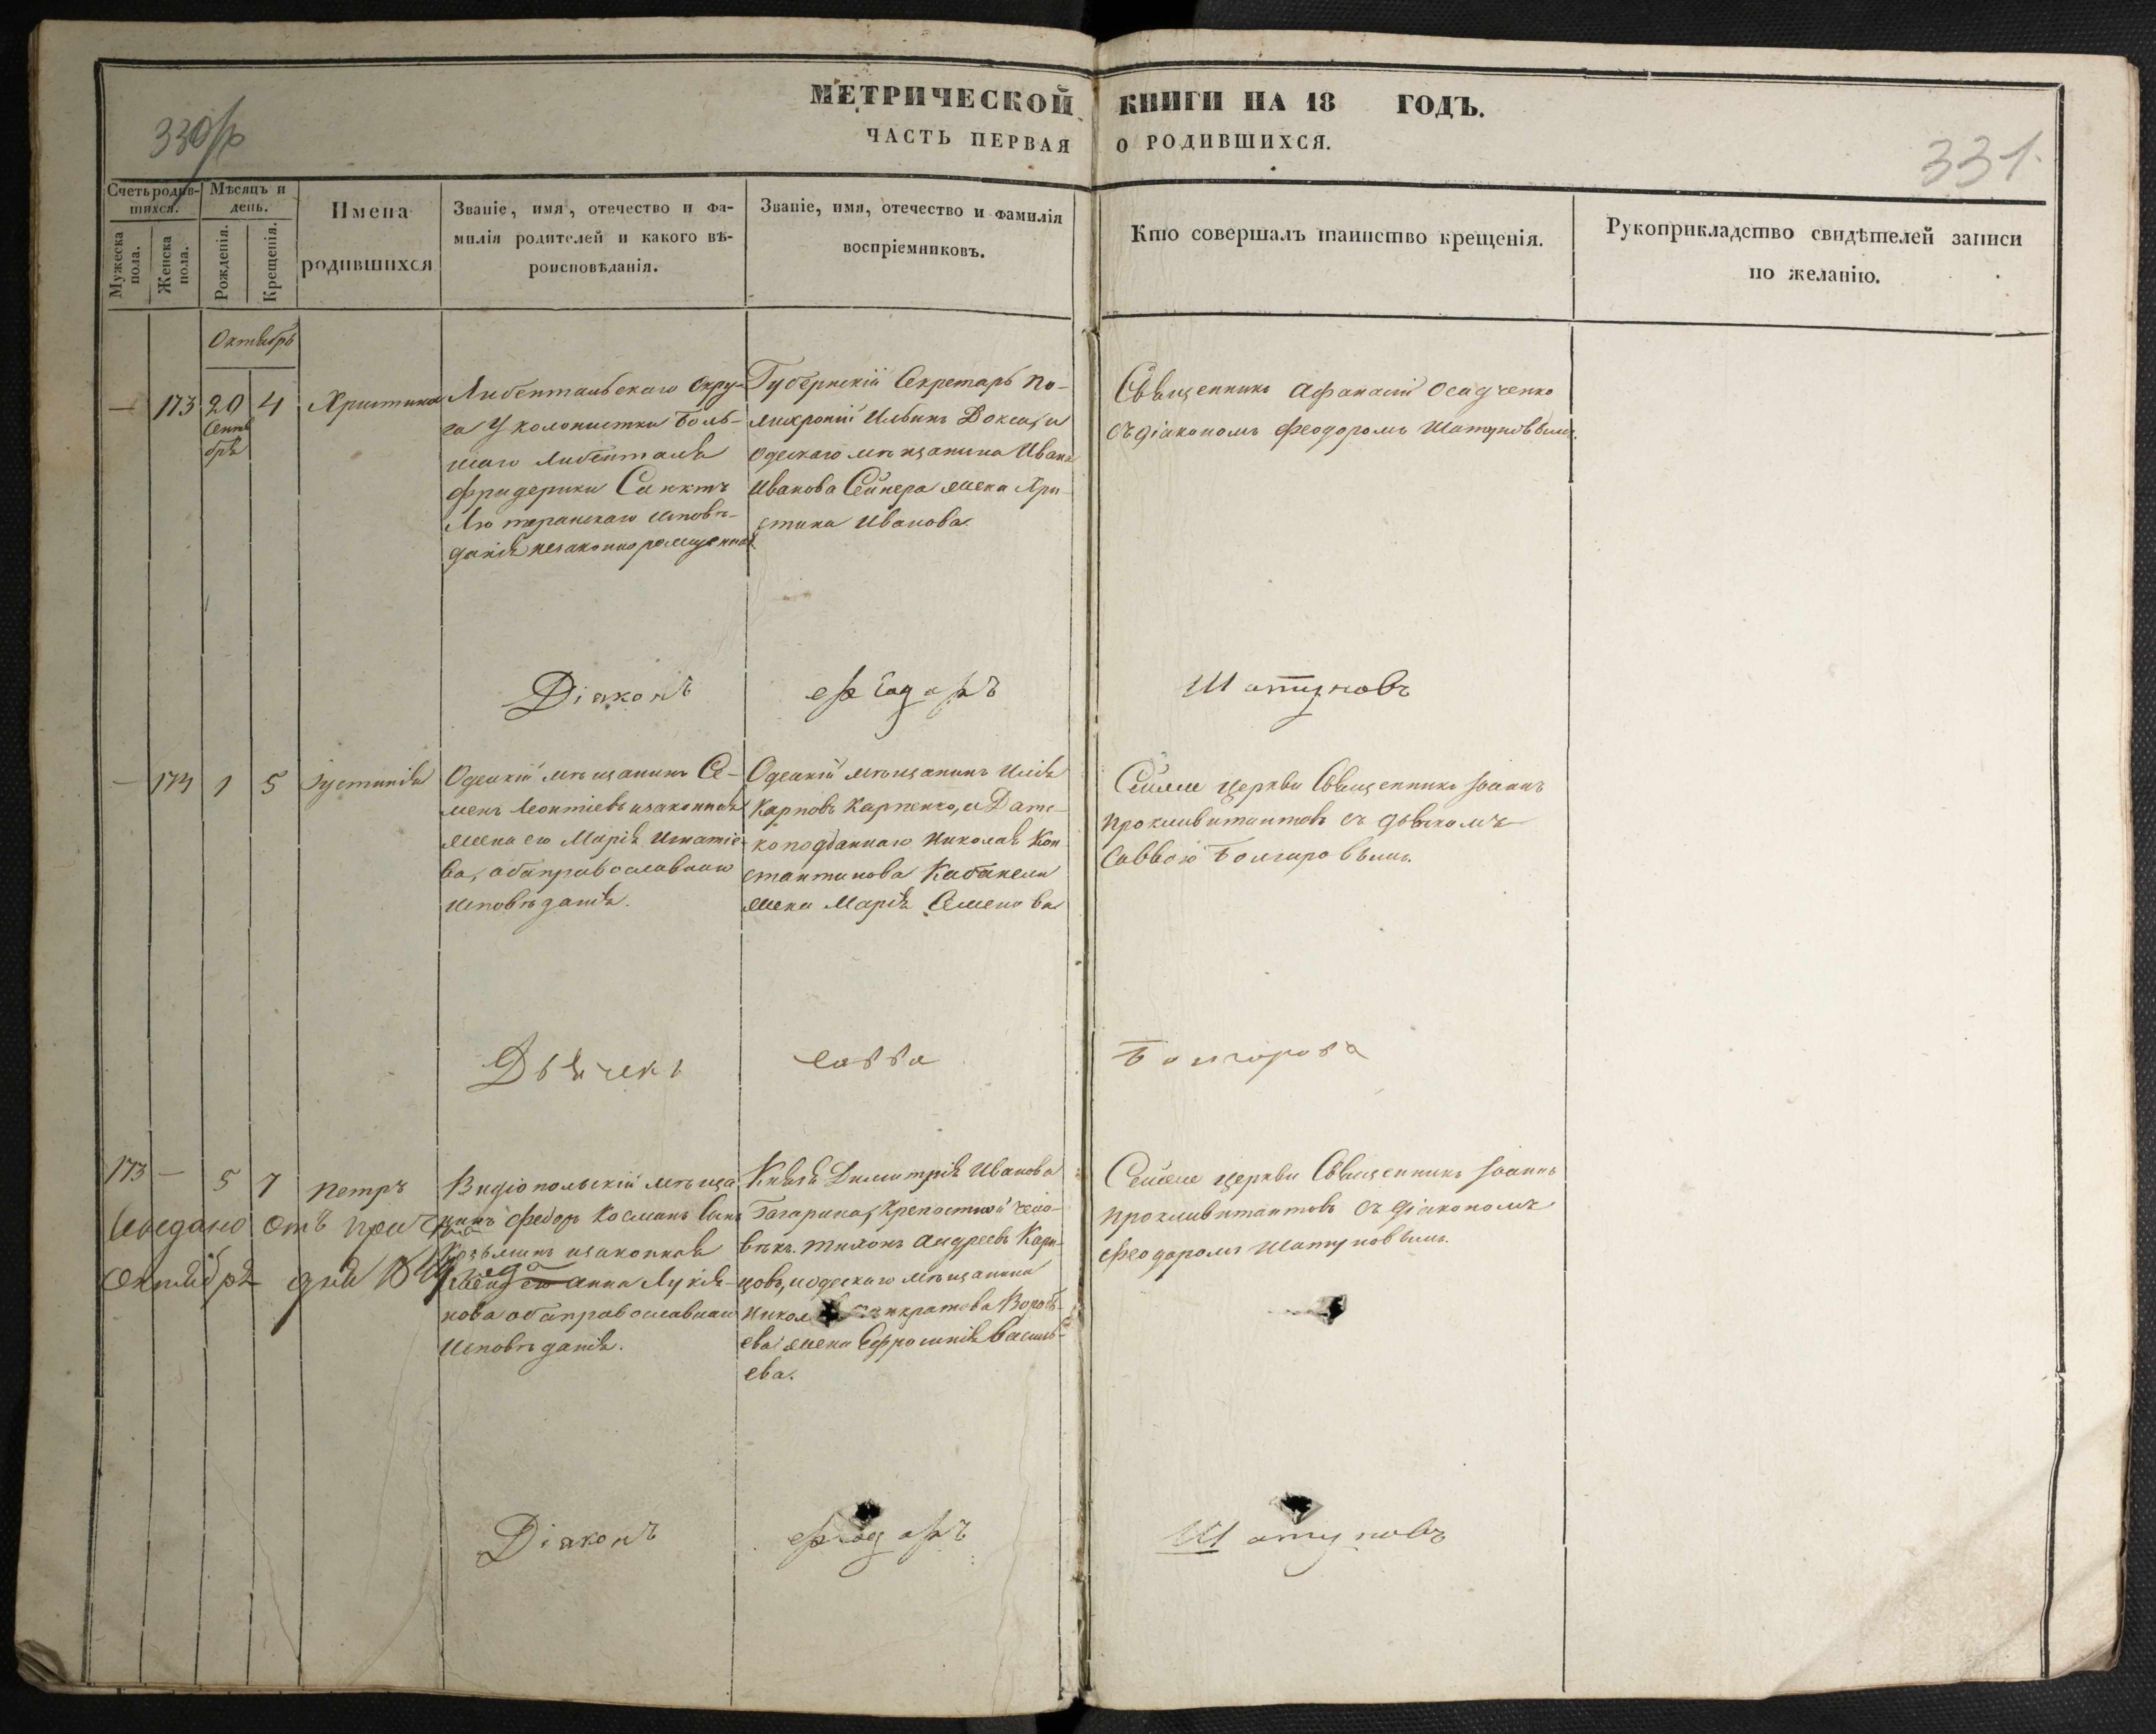 МЕТРИЧЕСКОЙ КНИГИ НА 18 ГОДЪ.
ЧАСТЬ ПЕРВАЯ О РОДИВШИХСЯ.
330
331
Счетъ родив-
шихся.
Мужеска пола.
Женска пола.
Мѣсяцъ и
день.
Рожденія.
Крещенія.
Имена
родившихся
Званіе, имя, отечество и фа-
милія родителей и какого вѣ-
роисповѣданія.
Званіе, имя, отечество и фамилія
воспріемниковъ.
Кто совершалъ таинство крещенія.
Рукоприкладство свидѣтелей записи
по желанію.
Октябрь
— 173 20 4 Христина
Сентя
бря
Либентальскаго Окру-
га У колонистки Боль-
шаго Либенталя
Фридерики Санктъ
Лютеранскаго исповѣ-
данія незаконнорожденная
Губернскій Секретарь По-
лихроній Ильинъ Доксади
Одескаго мѣщанина Ивана
Иванова Сейнера жена Хри-
стина Иванова
Священникъ Афанасій Осадченко
съ діакономъ Феодоромъ Шатуновымъ.
Діаконъ Феодоръ Шатуновъ
— 174 1 5 Іустинія
Одескій мѣщанинъ Се-
менъ Леонтіевъ изаконная
жена его Марія Игнатіе-
ва, оба православнаго
исповѣданія.
Одескій мѣщанинъ Илія
Карповъ Карпенко, и Датс-
коподданнаго Николая Кон
стантинова
жена Марія Семенова
Сейже церкви Священникъ Іоаннъ
съ дьячкомъ
Саввою Болгаровымъ.
Дьячекъ Савва Болгарова
173 — 5 7 Петръ
Октября дня
Видіопольскій мѣща
нинъ Федоръ Косминъ сынъ
изаконная
жена его Анна Лукія-
нова оба православнаго
исповѣданія.
Князя Димитрія Иванова
Гагарина, Крепостной чело-
вѣкъ. Тихонъ Андреевъ Кар-
цовъ, иодескаго мѣщанина
Панкратова Воробь-
ева жена Ефросинія Василь-
ева.
Сейже церкви Священникъ Іоаннъ
съ діакономъ
Феодоромъ Шатуновымъ.
Діаконъ Феодоръ Шатуновъ